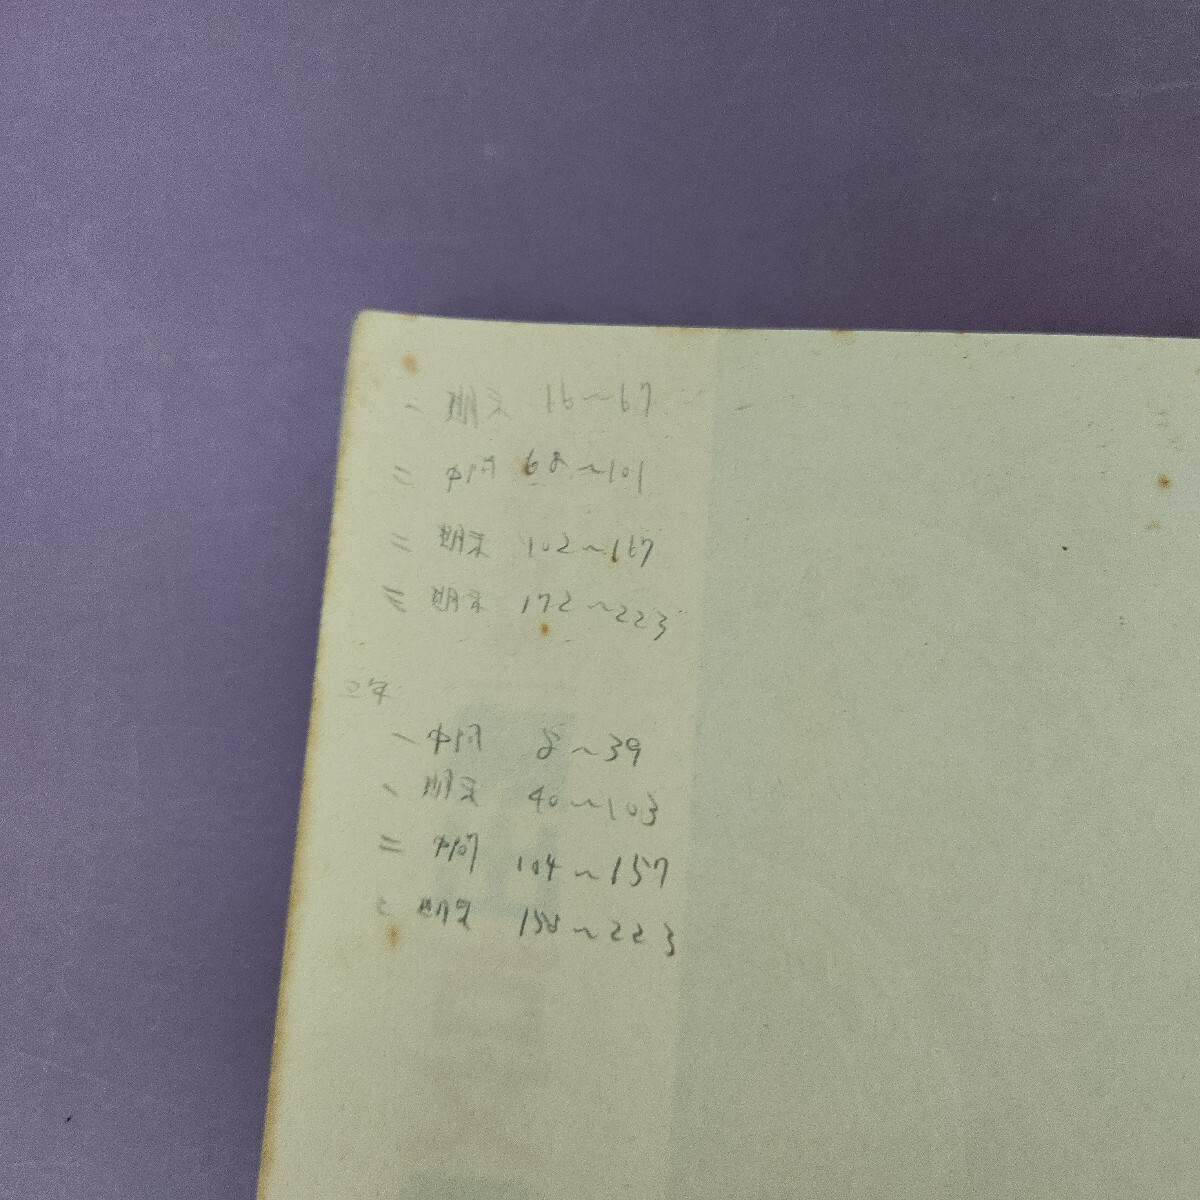 一 期末 16〜67
二 中間 68〜101
二 期末 102〜167
三 期末 172〜223
2年
一 中間 8〜39
一 期末 40〜103
二 中間 104〜157
二 期末 158〜223